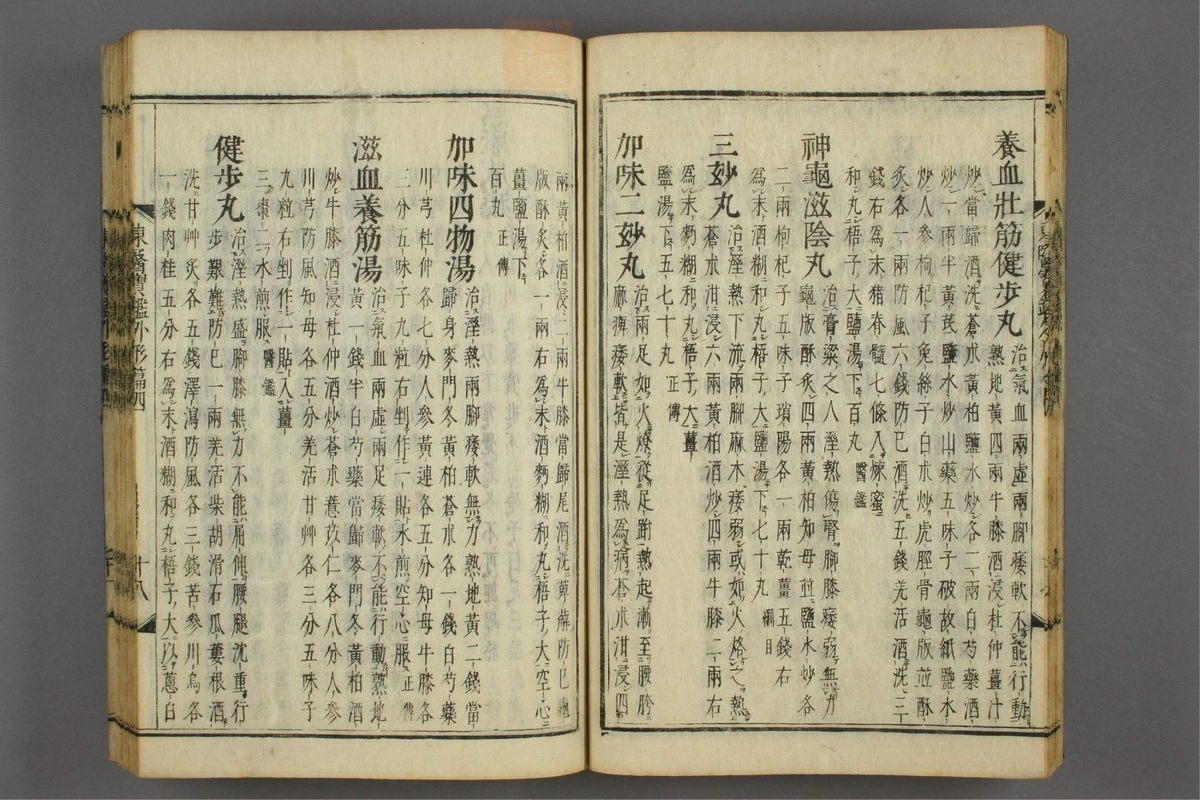 養血壯筋健步丸 治氣血兩虛兩腳痿軟不能行動
熟地黃四兩牛膝酒浸杜仲薑汁
炒當歸酒洗蒼朮黃柏鹽水炒各二兩白芍藥酒
炒一兩半黃芪鹽水炒山藥五味子破故紙鹽水
炒人參枸杞子兔絲子白朮炒虎脛骨龜版並酥
炙各一兩防風六錢防巳酒洗五錢羌活酒洗三
錢右爲末猪脊髓七條入煉蜜
和丸梧子大鹽湯下百丸 醫鑑
神龜滋陰丸 治膏粱之人溼熱傷腎腳膝痿弱無力
龜版酥炙四兩黃柏知母並鹽水炒各
二兩枸杞子五味子瑣陽各一兩乾薑五錢右
爲末酒糊和丸梧子大鹽湯下七十丸 綱目
三妙丸 治溼熱下流兩腳麻木痿弱或如火烙之熱
蒼朮泔浸六兩黃柏酒炒四兩牛膝二兩右
爲末麪糊和丸梧子大薑
鹽湯下五七十丸 正傳
加味二妙丸 治兩足如火燎從足跗熱起漸至腰胯
麻痺痿軟皆是溼熱爲病蒼朮泔浸四
兩黃柏酒浸二兩牛膝當歸尾酒洗萆薢防巳龜
版酥炙各一兩右爲末酒麪糊和丸梧子大空心
薑鹽湯下
百丸 正傳
加味四物湯 治溼熱兩腳痿軟無力熟地黃二錢當
歸身麥門冬黃柏蒼朮各一錢白芍藥
川芎杜仲各七分人參黃連各五分知母牛膝各
三分五味子九粒右剉作一貼水煎空心服 正傳
滋血養筋湯 治氣血兩虛兩足痿軟不能行動熟地
黃一錢半白芍藥當歸麥門冬黃柏酒
炒牛膝酒浸杜仲酒炒蒼朮薏苡仁各八分人參
川芎防風知母各五分羌活甘艸各三分五味子
九粒右剉作一貼入薑
三棗二水煎服 醫鑑
健步丸 治溼熱盛腳膝無力不能屈伸腰腿沈重行
步艱難防巳一兩羌活柴胡滑石瓜蔞根酒
洗甘艸炙各五錢澤瀉防風各三錢苦參川烏各
一錢肉桂五分右爲末酒糊和丸梧子大以蔥白
東醫寶鑑外形篇四
十八